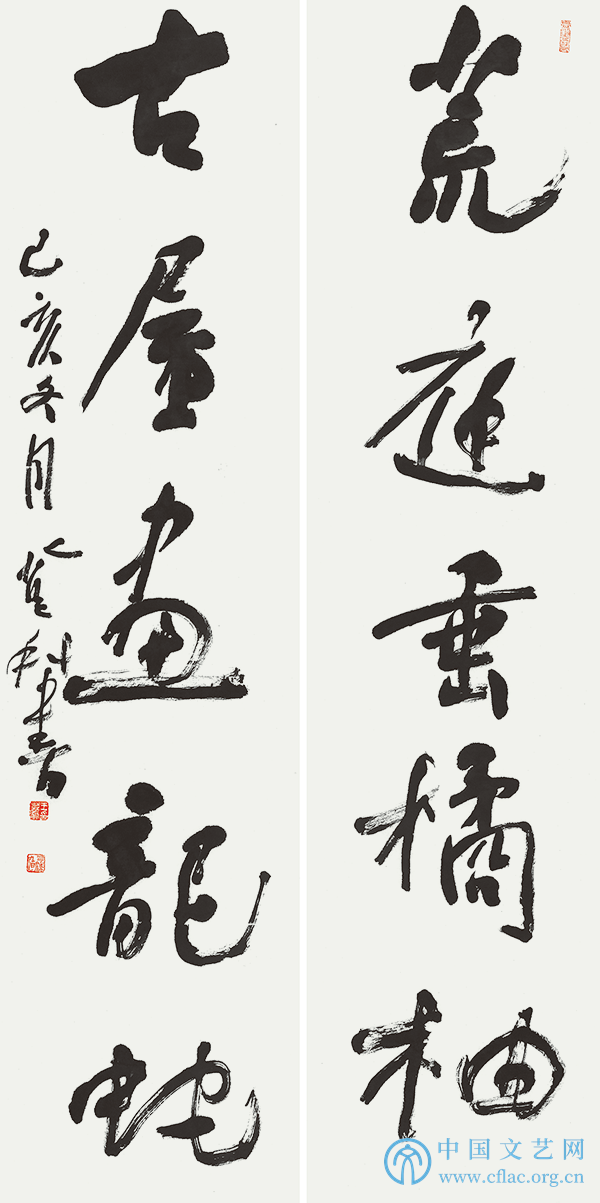 荒庭垂橘柚
古屋画龍蛇
己亥冬月登科書
中国文艺网
www.cflac.org.cn